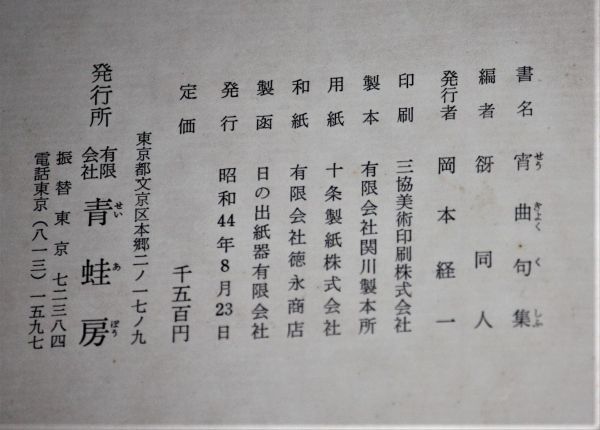 書名 宵曲句集
せうきよくくしふ
編者 谺同人
発行者 岡本経一
印刷 三協美術印刷株式会社
製本 有限会社関川製本所
用紙 十条製紙株式会社
和紙 有限会社徳永商店
製函 日の出紙器有限会社
発行 昭和44年8月23日
定価 千五百円
東京都文京区本郷二ノ一七ノ九
発行所 有限会社 青蛙房
せいあぼう
振替東京 七二三八四
電話東京(八一三)一五九七